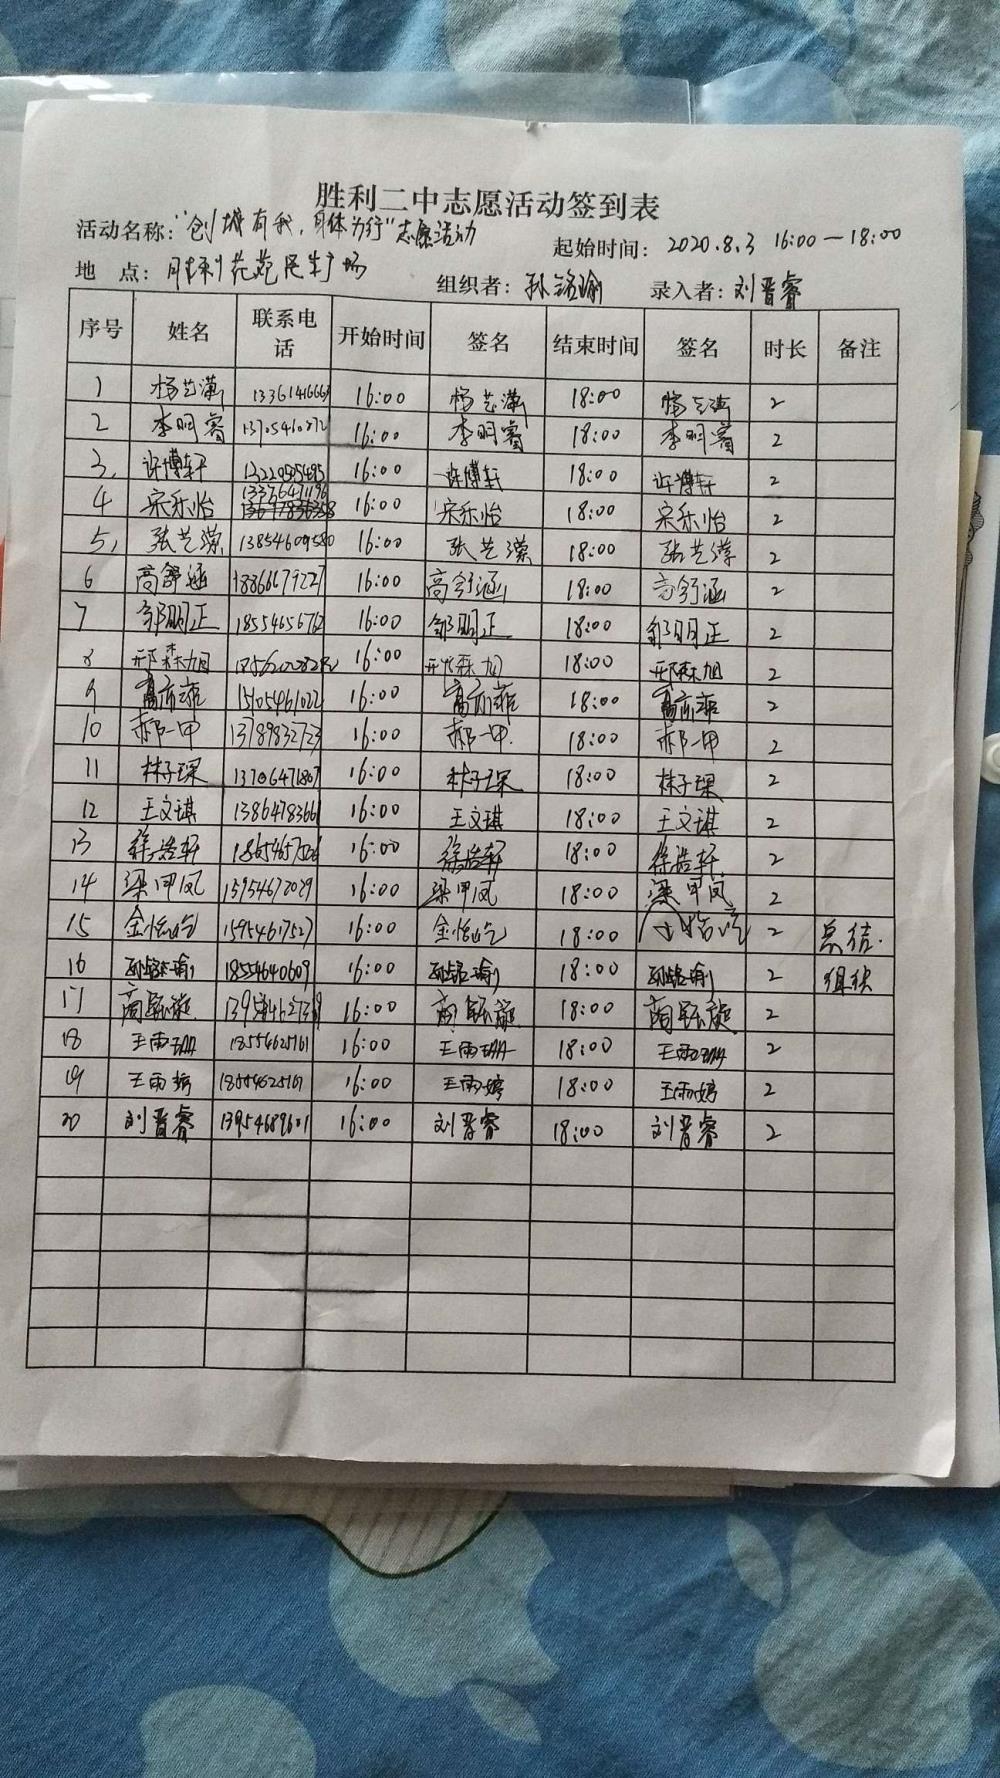 胜利二中志愿活动签到表
活动名称："创城有我，身体力行"志愿活动
起始时间：2020.8.3 16:00—18:00
地 点：胜利花苑民生广场 组织者：孙铭瑜 录入者：刘晋睿
序号 姓名 联系电话 开始时间 签名 结束时间 签名 时长 备注
1 杨艺潇 16:00 杨艺潇 18:00 杨艺潇 2
2 李明睿 16:00 李明睿 18:00 李明睿 2
3, 许博轩 16:00 许博轩 18:00 许博轩 2
4 宋乐怡 16:00 宋乐怡 18:00 宋乐怡 2
5, 张艺潆 13854609580 16:00 张艺潆 18:00 张艺潆 2
6 高舒涵 18366679227 16:00 高舒涵 18:00 高舒涵 2
7 邹明正 16:00 邹明正 18:00 邹明正 2
8 邢森旭 16:00 邢森旭 18:00 邢森旭 2
9 高亦菲 16:00 高亦菲 18:00 高亦菲 2
10 郝一甲 13789832723 16:00 郝一甲 18:00 郝一甲 2
11 林子琛 13706471807 16:00 林子琛 18:00 林子琛 2
12 王文琪 13864783661 16:00 王文琪 18:00 王文琪 2
13 徐浩轩 16:00 徐浩轩 18:00 徐浩轩 2
14 梁甲凤 16:00 梁甲凤 18:00 梁甲凤 2
15 金恬屹 15954617527 16:00 金恬屹 18:00 2 总结.
16 孙铭瑜 18554640609 16:00 孙铭瑜 18:00 孙铭瑜 2 组织
17 16:00 18:00 2
18 王雨珊 18554625161 16:00 王雨珊 18:00 王雨珊 2
19 王雨婷 18554625161 16:00 王雨婷 18:00 王雨婷 2
20 刘晋睿 13954689601 16:00 刘晋睿 18:00 刘晋睿 2